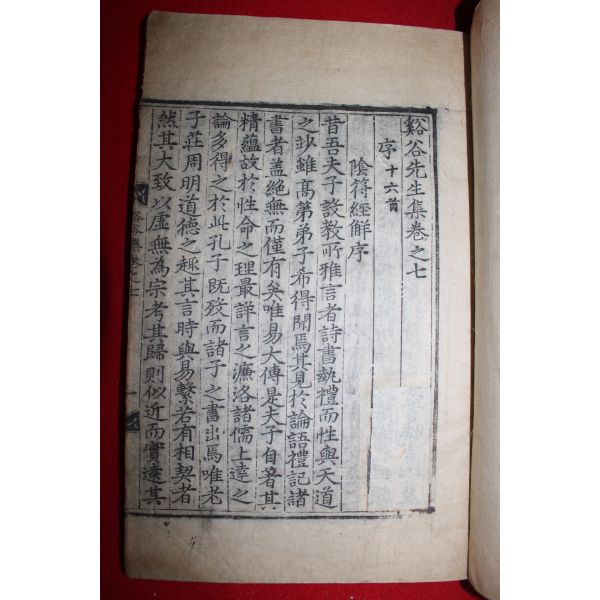 谿谷先生集卷之七
序十六首
陰符經解序
昔吾夫子設教所雅言者詩書執禮而性與天道
之妙雖高第弟子希得聞焉其見於論語禮記諸
書者盖絶無而僅有矣唯易大傳是夫子自著其
精蘊故於性命之理最詳言之濂洛諸儒上達之
論多得之於此孔子旣歿而諸子之書出焉唯老
子莊周明道德之趣其言時與易繫若有相契者
然其大致以虛無爲宗考其歸則似近而實遠其
谿谷集卷之七
一